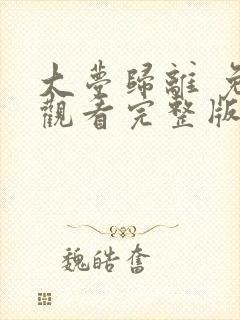 大夢歸離 免
觀看完整版
魏皓奮